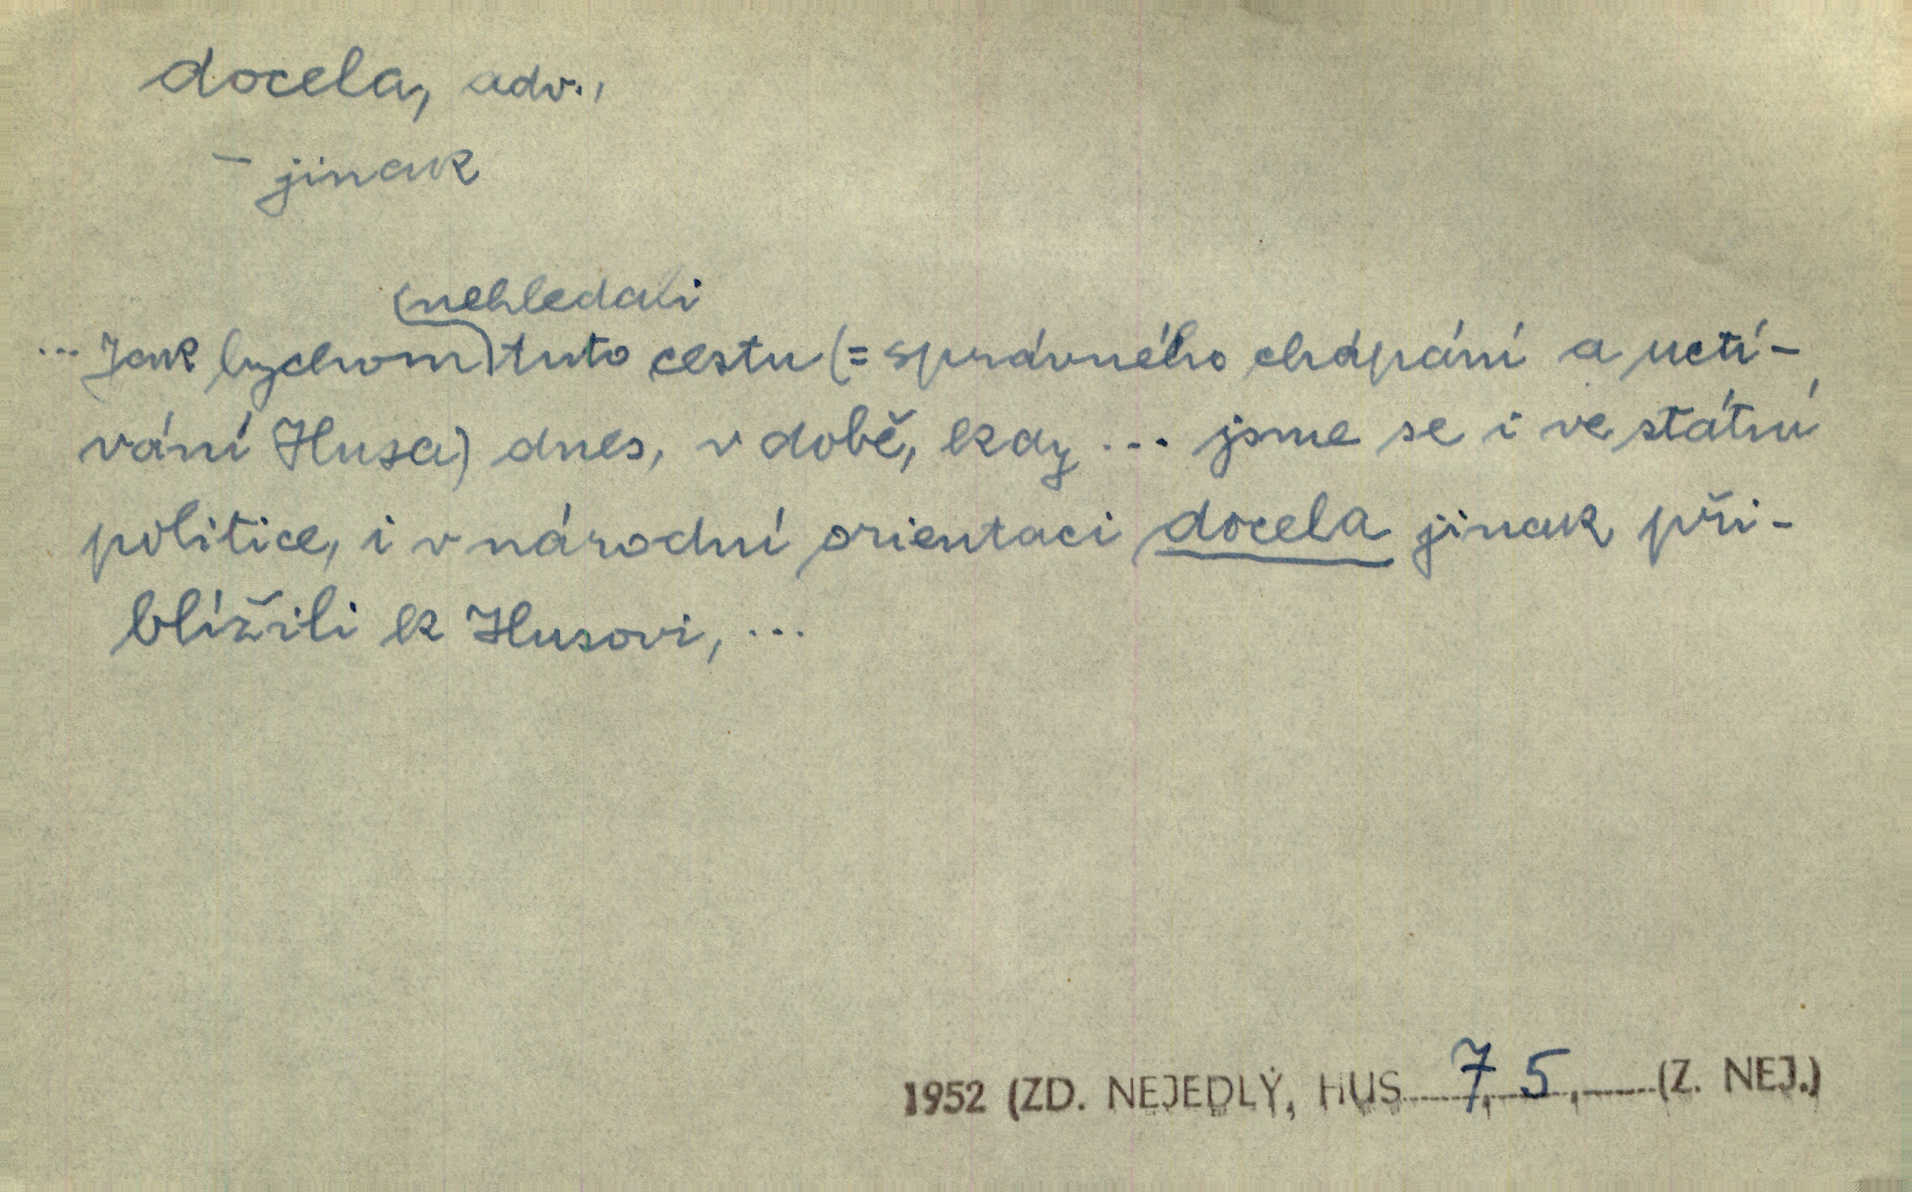 docela, adv.,
– jinak
nehledali
... Jak bychom tuto cestu (= správného chápání a uctí-
vání Husa) dnes, v době, kdy ... jsme se i ve státní
politice, i v národní orientaci docela jinak při-
blížili k Husovi, ...
1952 (ZD. NEJEDLÝ, HUS 7, 5, (Z. NEJ.)